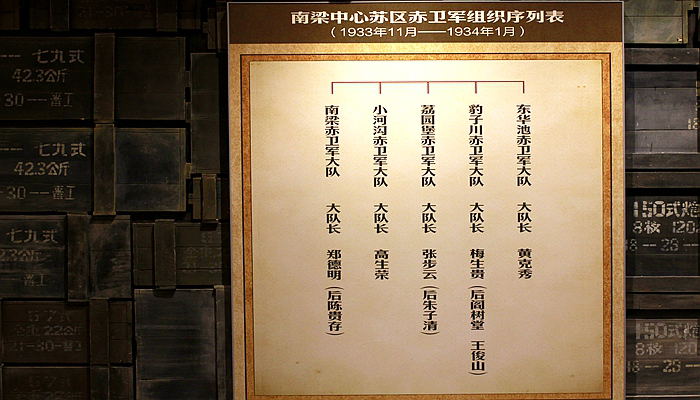 南梁中心苏区赤卫军组织序列表
（1933年11月——1934年1月）
南梁赤卫军大队 大队长 郑德明（后陈贵存）
小河沟赤卫军大队 大队长 高生荣
荔园堡赤卫军大队 大队长 张步云（后朱子清）
豹子川赤卫军大队 大队长 梅生贵（后阎树堂 王俊山）
东华池赤卫军大队 大队长 黄克秀
七九式
42.3公斤
30--普工
七九式
42.3公斤
30--普工
七九式
150式炮
8枚 120
18--28-
150式炮
8枚 120
18--28-